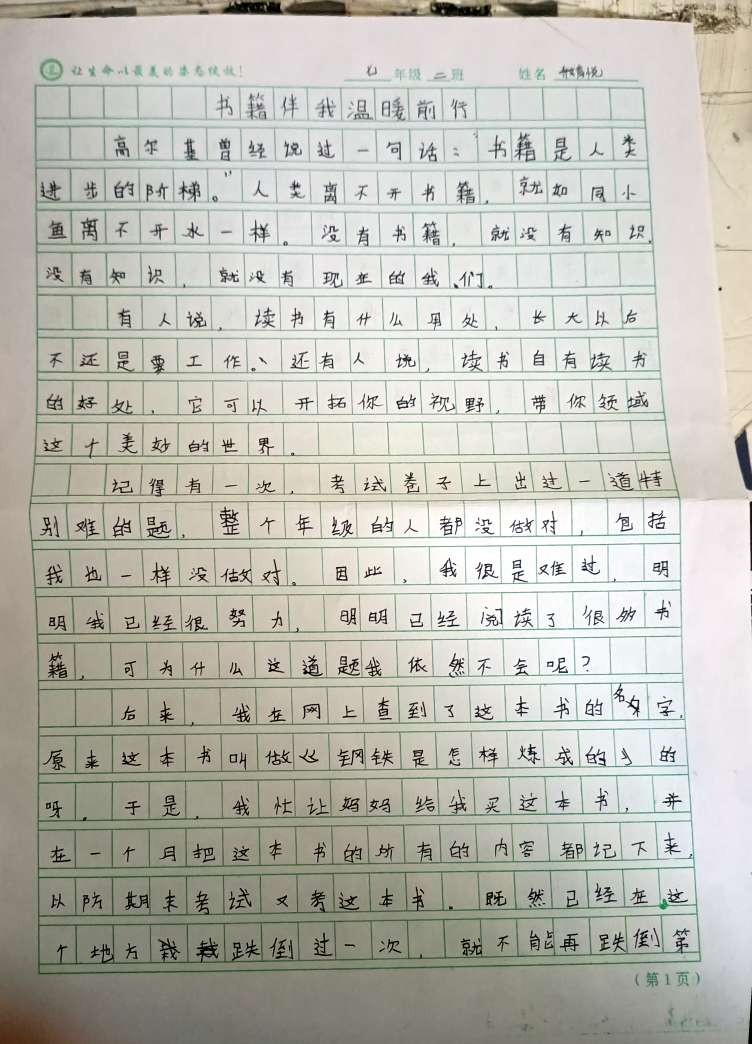 让生命以最美的姿态绽放！ 七 年级 二 班 姓名
书籍伴我温暖前行
高尔基曾经说过一句话：“书籍是人类
进步的阶梯。”人类离不开书籍，就如同小
鱼离不开水一样。没有书籍，就没有知识，
没有知识，就没有现在的我们。
有人说，读书有什么用处，长大以后
不还是要工作。还有人说，读书自有读书
的好处，它可以开拓你的视野，带你领域
这个美妙的世界。
记得有一次，考试卷子上出过一道特
别难的题，整个年级的人都没做对，包括
我也一样没做对。因此，我很是难过，明
明我已经很努力，明明已经阅读了很多书
籍，可为什么这道题我依然不会呢？
后来，我在网上查到了这本书的名字，
原来这本书叫做《钢铁是怎样炼成的》的
呀。于是，我忙让妈妈给我买这本书，并
在一个月把这本书的所有的内容都记下来，
以防期末考试又考这本书。既然已经在这
个地方栽跌倒过一次，就不能再跌倒第
（第1页）